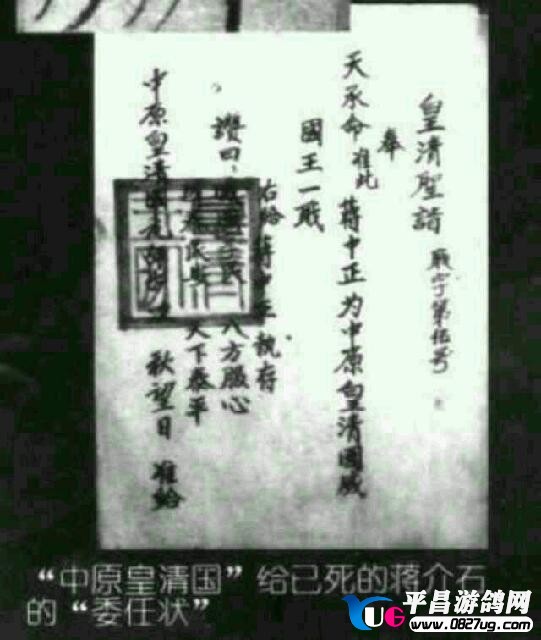 皇清聖諳 職字第伍号
奉
天承命 准此 蔣中正为中原皇清國威
國王一職
右给蔣中正执存
讚曰： 八方服心
天下泰平
中原皇清國 秋望日 准给
“中原皇清国”给已死的蒋介石
的“委任状”
YUG 平昌游鸽网
www.0827ug.com